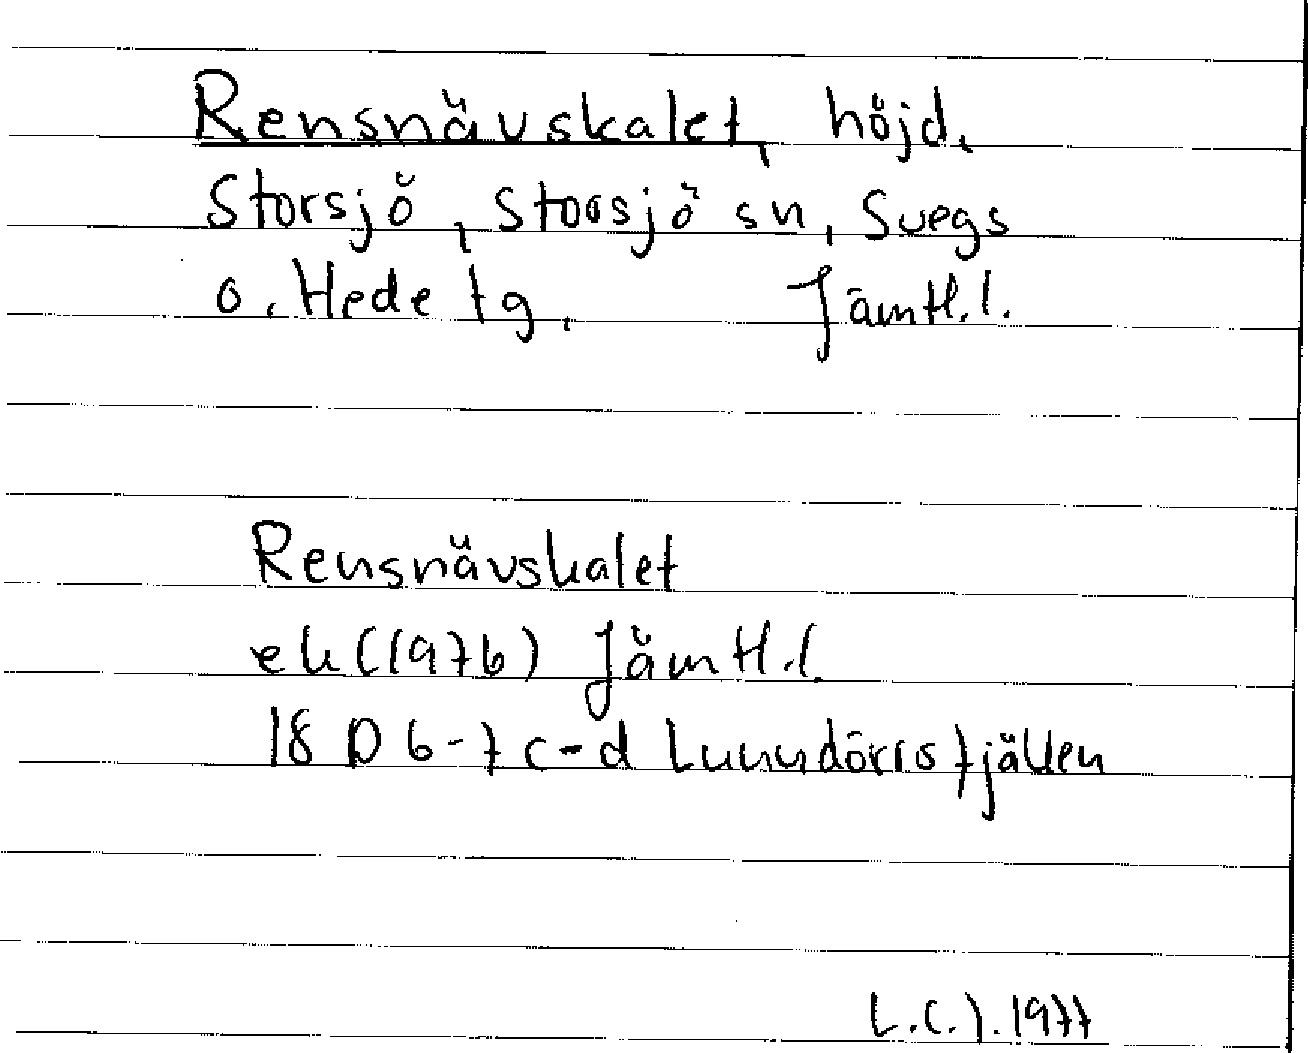 Rensnävskalet, höjd,
Storsjö, Storsjö sn, Svegs
o. Hede tg. Jämtl.l.
Rensnävskalet
ek (1976) Jämtl.l.
18 D 6-7 c-d Lunndörrsfjällen
L.C.J. 1977